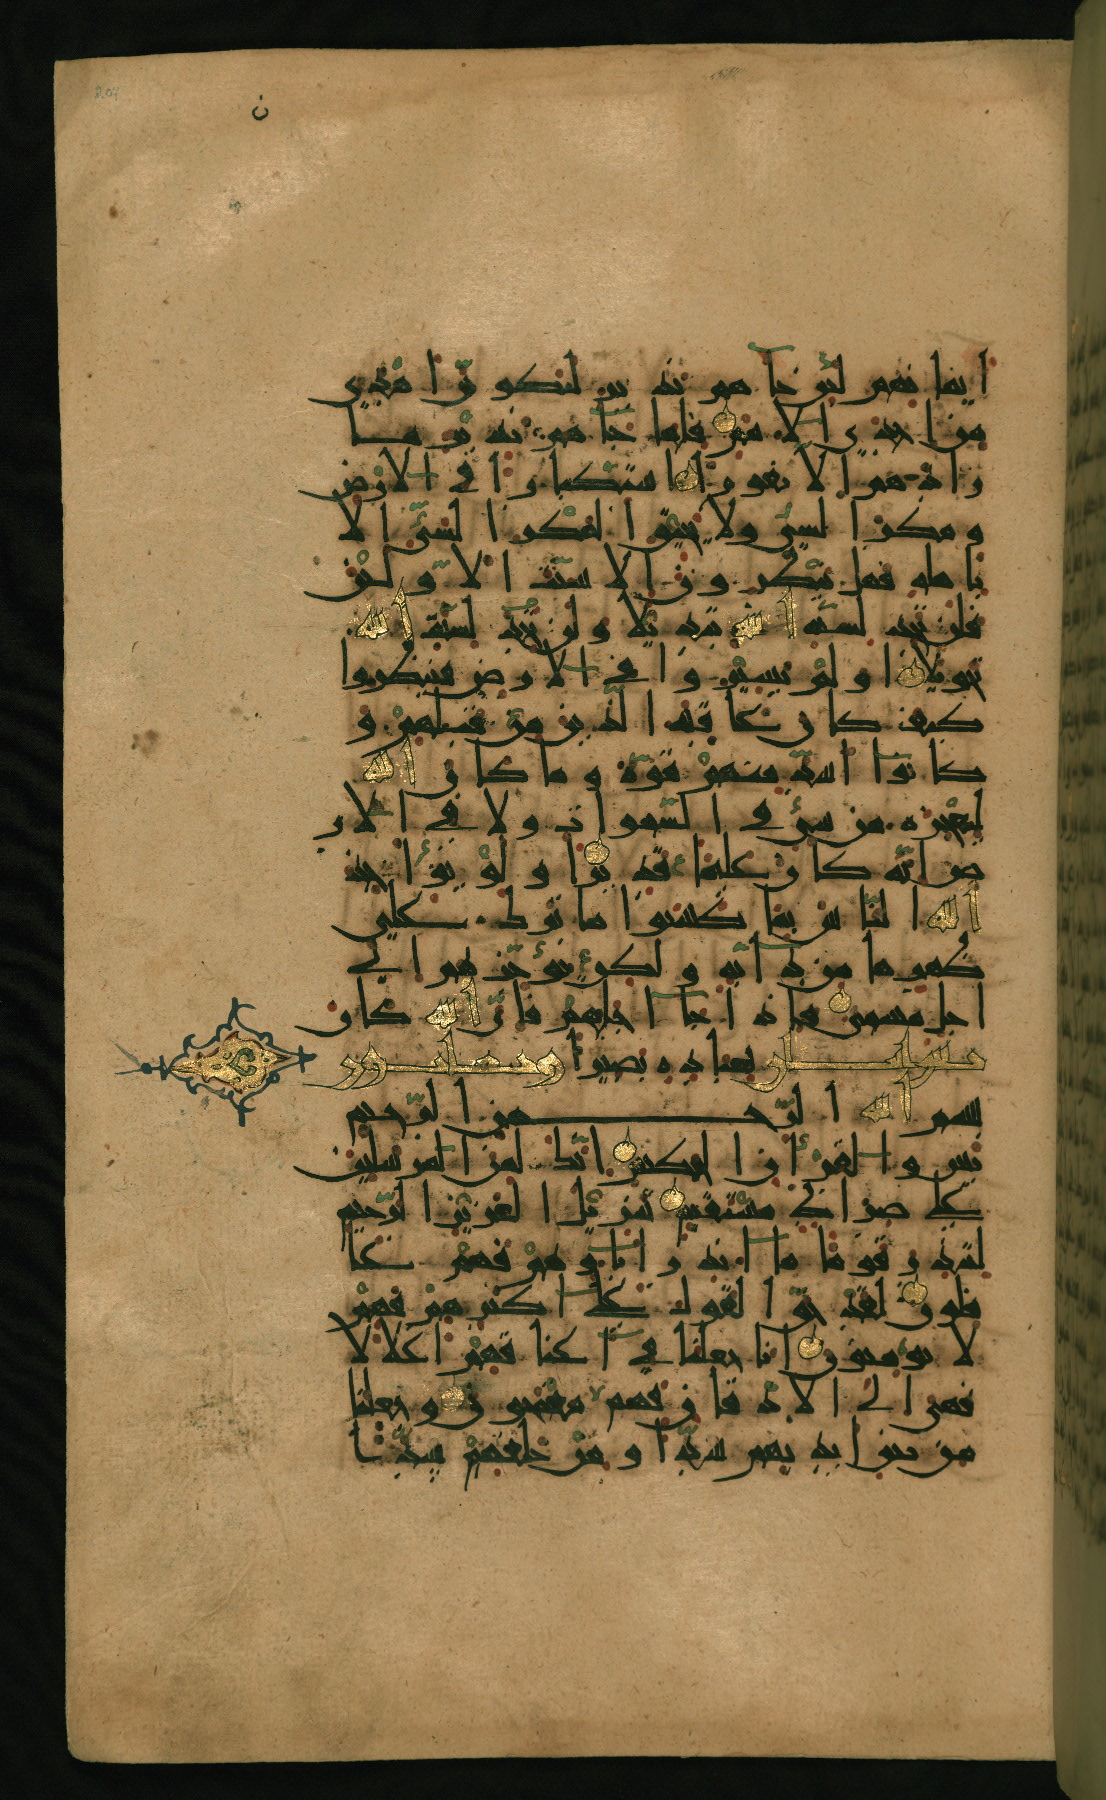 204
ن
ايمانهم لئن جاهم نذير ليكونن اهدى
من احدى الامم فلما جاهم نذير ما
زادهم الا نفورا استكبارا في الارض
ومكر السيئ ولا يحيق المكر السيئ الا
باهله فهل ينظرون الا سنت الاولين
فلن تجد لسنت الله تبديلا ولن تجد لسنت الله
تحويلا اولم يسيروا في الارض فينظروا
كيف كان عاقبة الذين من قبلهم و
كانوا اشد منهم قوة وما كان الله
ليعجزه من شئ في السموات ولا في الار
ض انه كان عليما قديرا ولو يؤاخذ
الله الناس بما كسبوا ما ترك على
ظهرها من دابة ولكن يؤخرهم الى
اجل مسمى فاذا جا اجلهم فان الله كان
بعباده بصيرا
بسم الله الرحمن الرحيم
يس والقرءان الحكيم انك لمن المرسلين
على صراط مستقيم تنزيل العزيز الرحيم
لتنذر قوما ما انذر اباؤهم فهم غا
فلون لقد حق القول على اكثرهم فهم
لا يؤمنون انا جعلنا في اعناقهم اغلالا
فهي الى الاذقان فهم مقمحون وجعلنا
من بين ايديهم سدا ومن خلفهم سدا